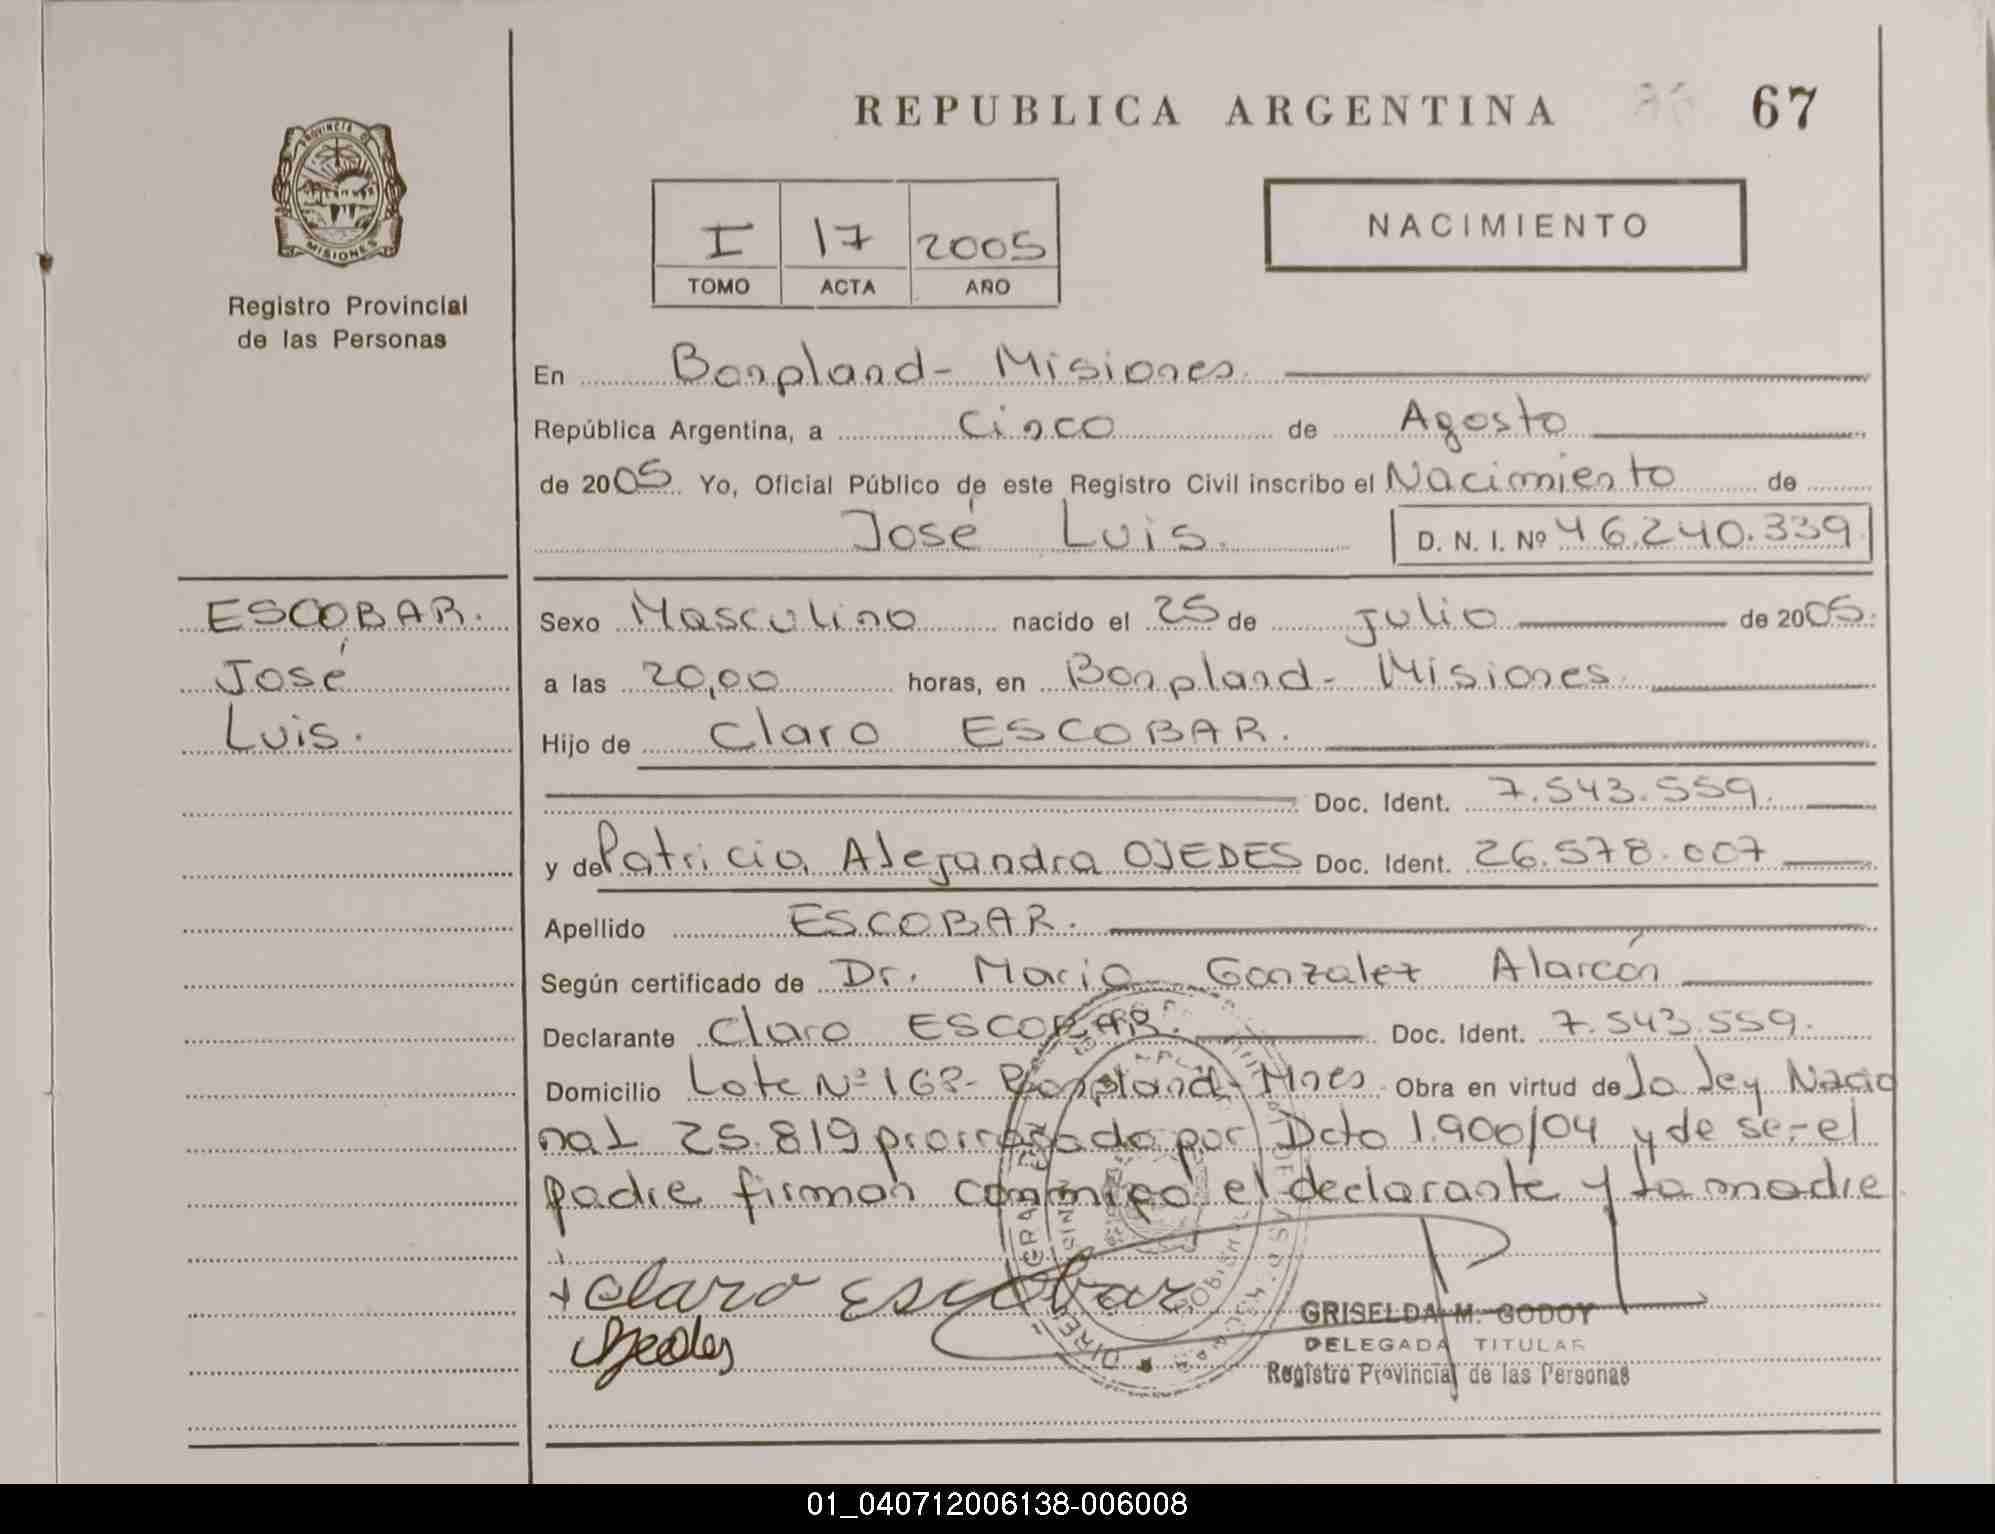 REPUBLICA ARGENTINA 67
PROVINCIA DE
MISIONES
Registro Provincial
de las Personas
I 17 2005
TOMO ACTA AÑO
NACIMIENTO
En Bonpland - Misiones.
República Argentina, a Cinco de Agosto
de 2005 Yo, Oficial Público de este Registro Civil inscribo el Nacimiento de
José Luis. D. N. I. Nº 46.240.339
ESCOBAR.
José
Luis.
Sexo Masculino nacido el 25 de julio de 2005.
a las 20,00 horas, en Bonpland - Misiones.
Hijo de Claro ESCOBAR.
Doc. Ident. 7.543.559.
y de Patricia Alejandra OJEDES Doc. Ident. 26.578.007
Apellido ESCOBAR.
Según certificado de Dr. Mario Gonzalez Alarcón
Declarante Claro ESCOBAR. Doc. Ident. 7.543.559.
Domicilio Lote Nº 168- Bonpland - Mnes Obra en virtud de la ley Nacio
nal 25.819 prorrogado por Dcto 1.900/04 y de ser el
padre firman conmigo el declarante y la madre
Claro Escobar
Ojedes
GRISELDA M. GODOY
DELEGADA TITULAR
Registro Provincial de las Personas
01_040712006138-006008